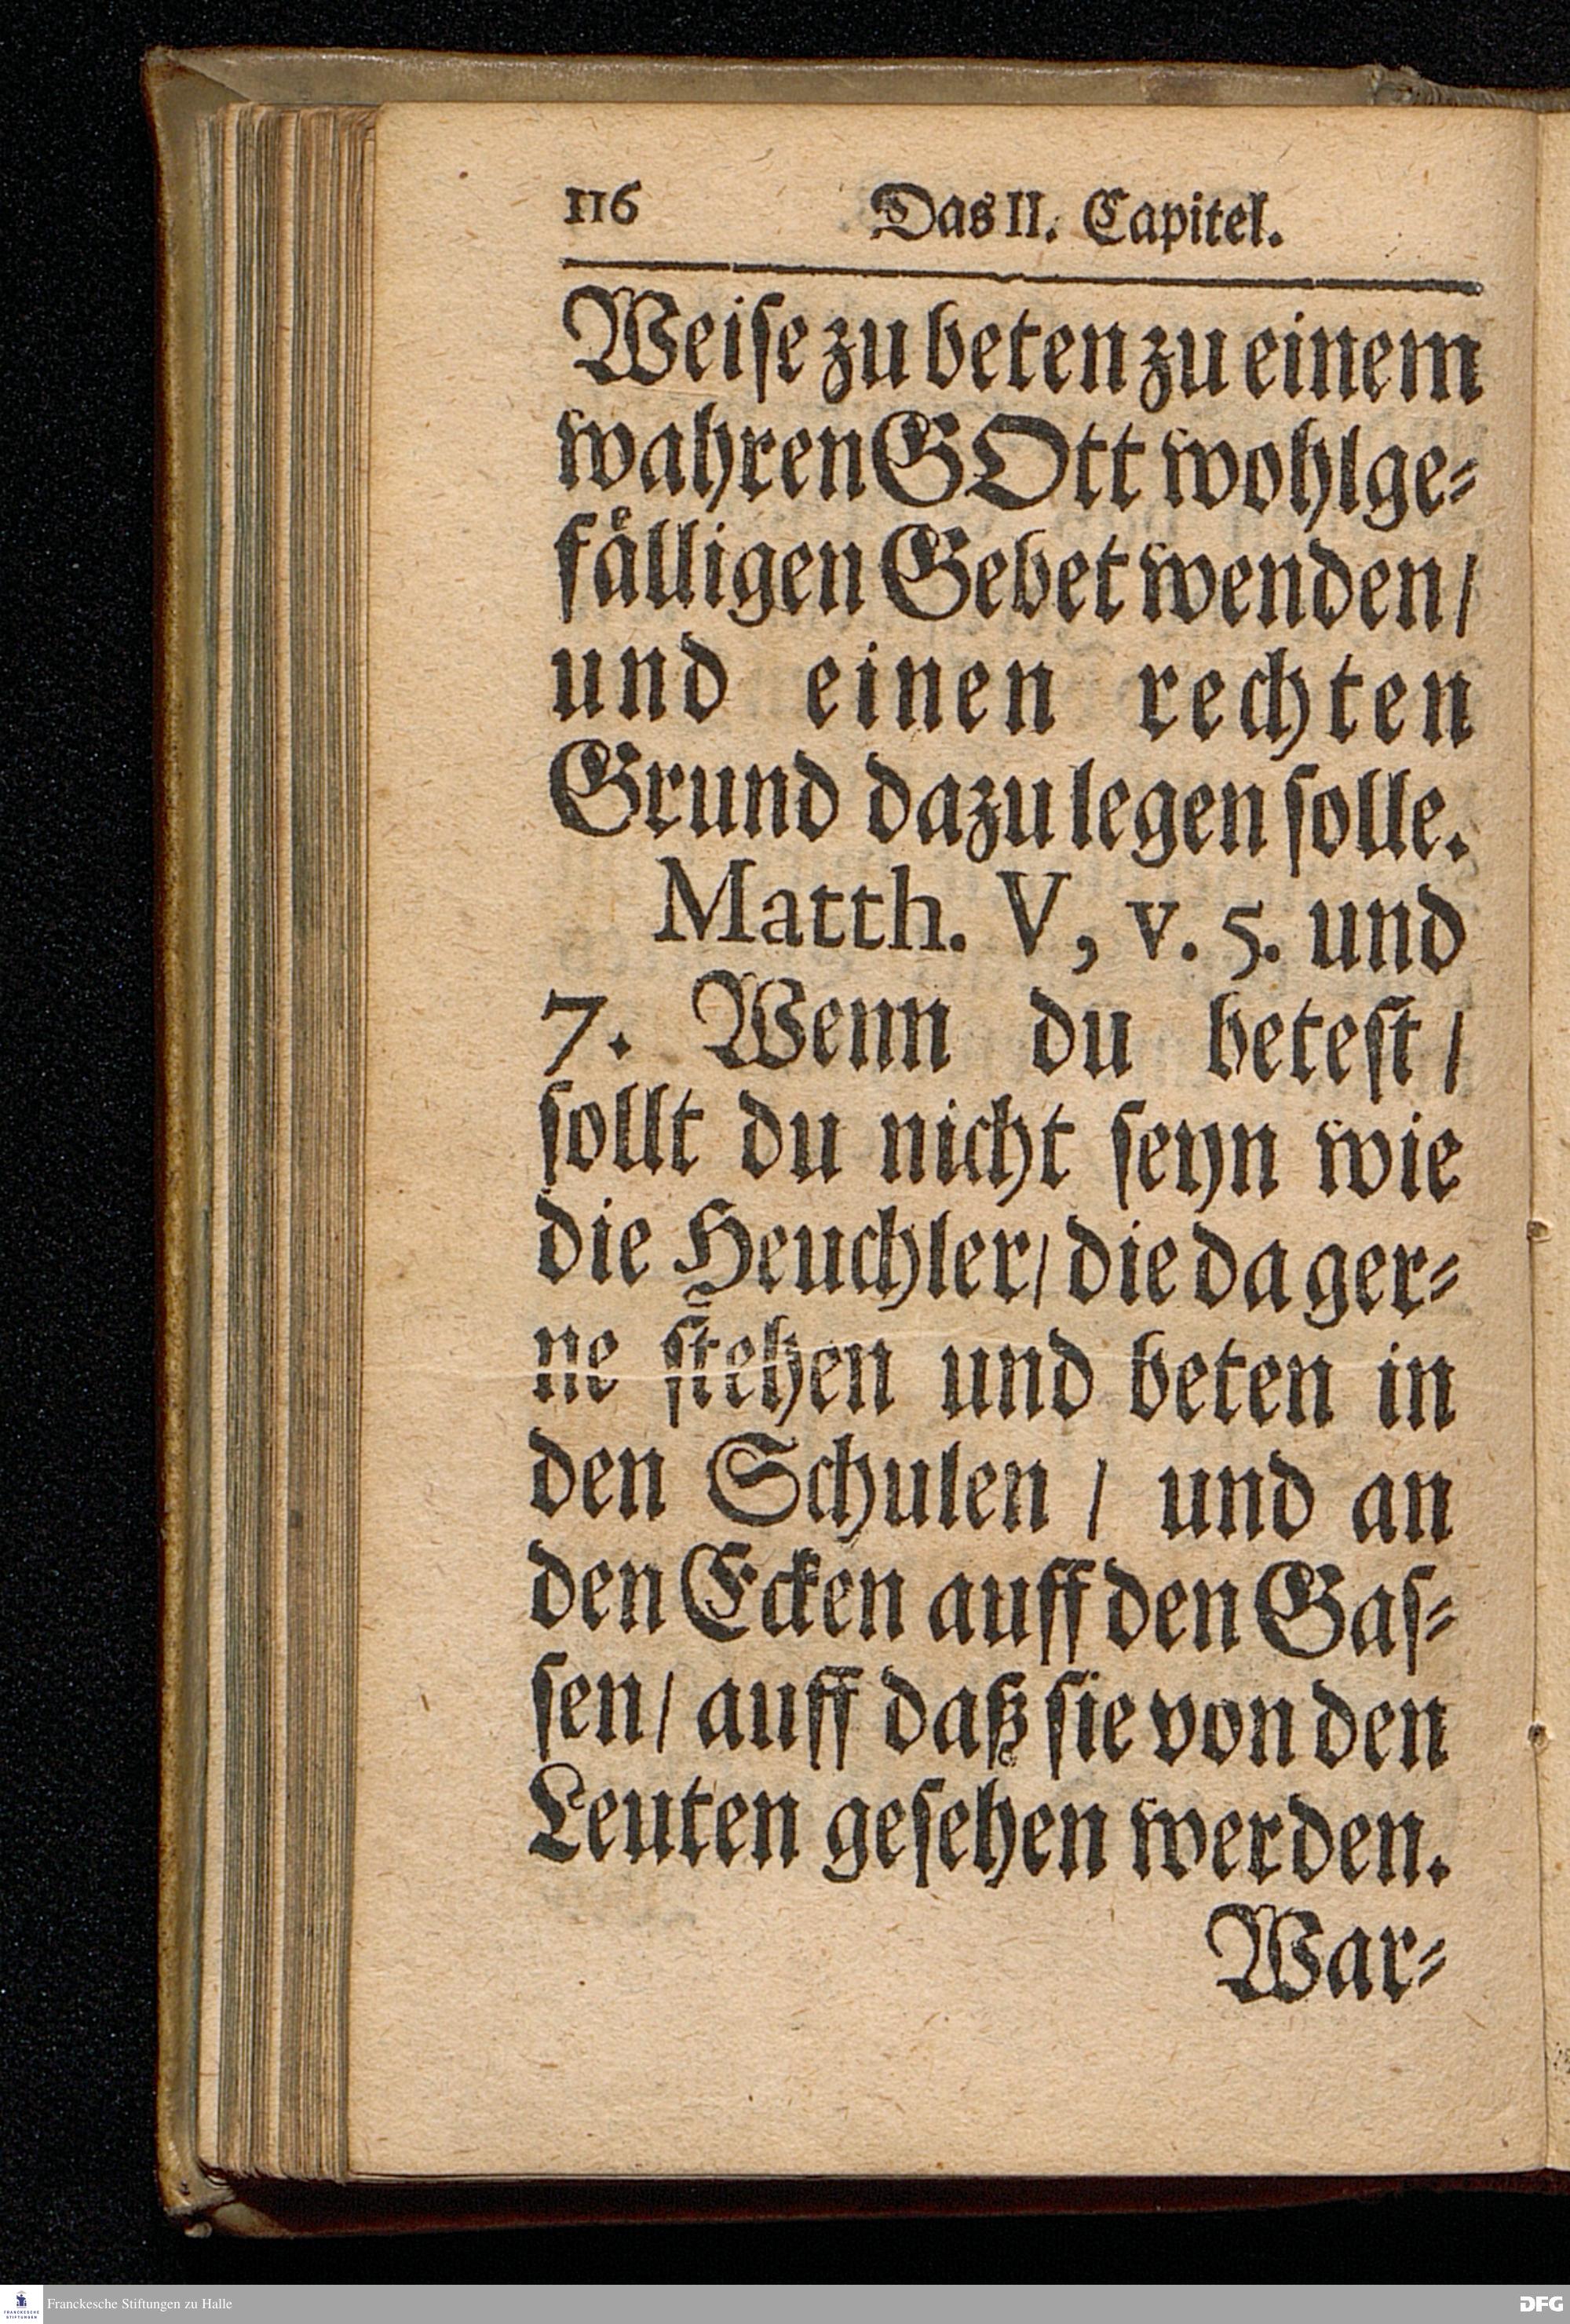 116 Das II. Capitel.
Weiſe zu beten zu einem
wahren GOtt wohlge⸗
faͤlligen Gebet wenden/
und einen rechten
Grund dazu legen ſolle.
Matth. V, v. 5. und
7. Wenn du beteſt/
ſollt du nicht ſeyn wie
die Heuchler/ die da ger⸗
ne ſtehen und beten in
den Schulen / und an
den Ecken auff den Gaſ⸗
ſen/ auff daß ſie von den
Leuten geſehen werden.
War⸗
FRANCKESCHE STIFTUNGEN
Franckesche Stiftungen zu Halle
DFG